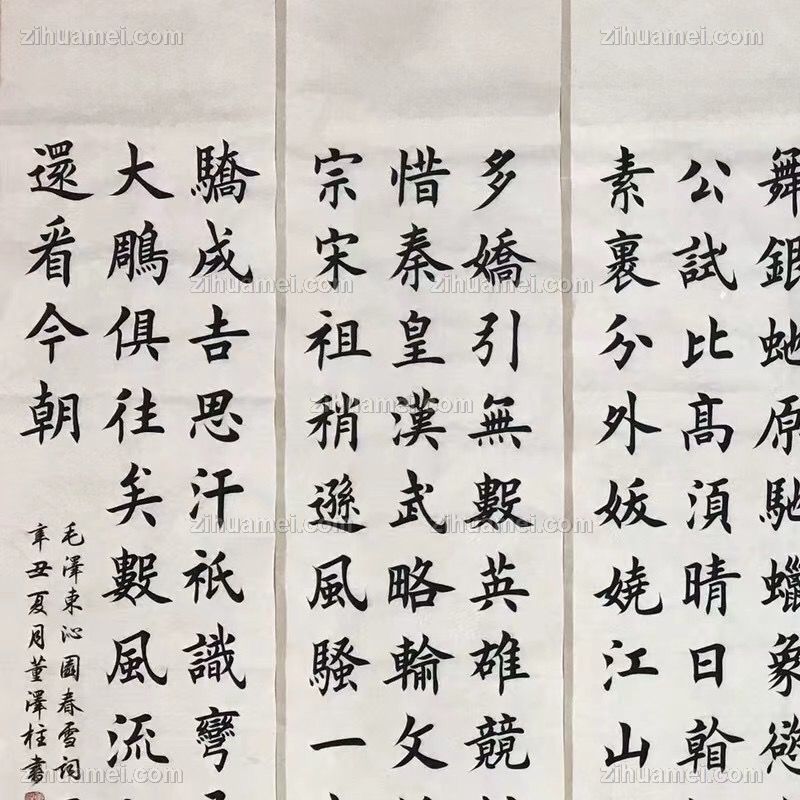 舞銀虵原馳蠟象慾
公試比高須晴日
素裹分外妖嬈江山
多嬌引無數英雄競
惜秦皇漢武略輸文
宗宋祖稍遜風騷一
驕成吉思汗祇識彎
大鵰俱往矣數風流
還看今朝
毛澤東沁園春雪詞
辛丑夏月董澤柱書
zihuamei.com
zihuamei.com
zihuamei.com
zihuamei.com
zihuamei.com
zihuamei.com
zihuamei.com
zihuamei.com
zihuamei.com
zihuamei.com
zihuamei.com